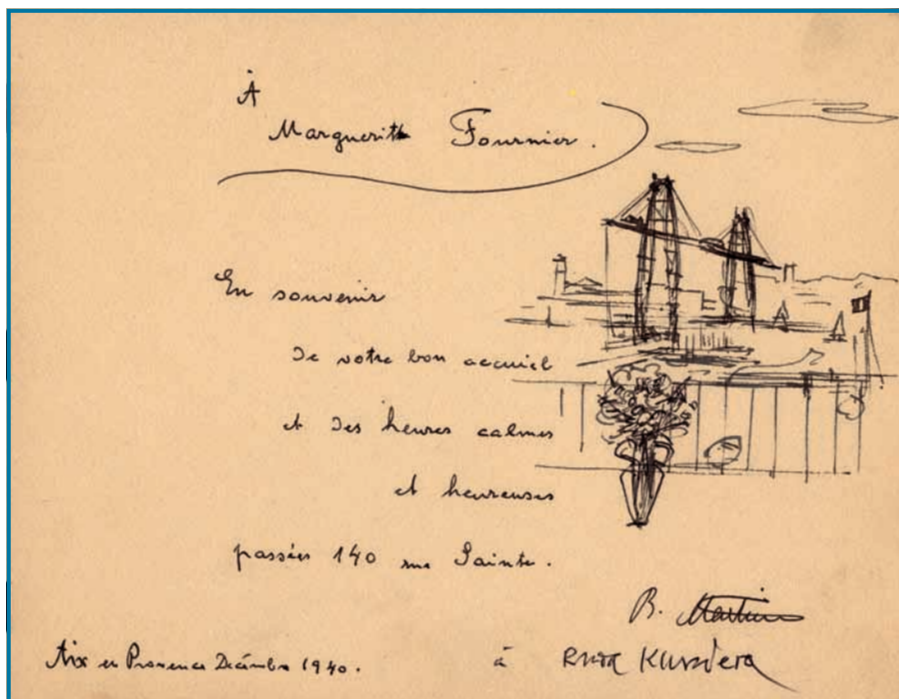 À
Marguerite Fournier.
En souvenir
de votre bon accueil
et des heures calmes
et heureuses
passées 140 rue Sainte.
B. Martinu
Aix en Provence Décembre 1940. à Ruda Kundera